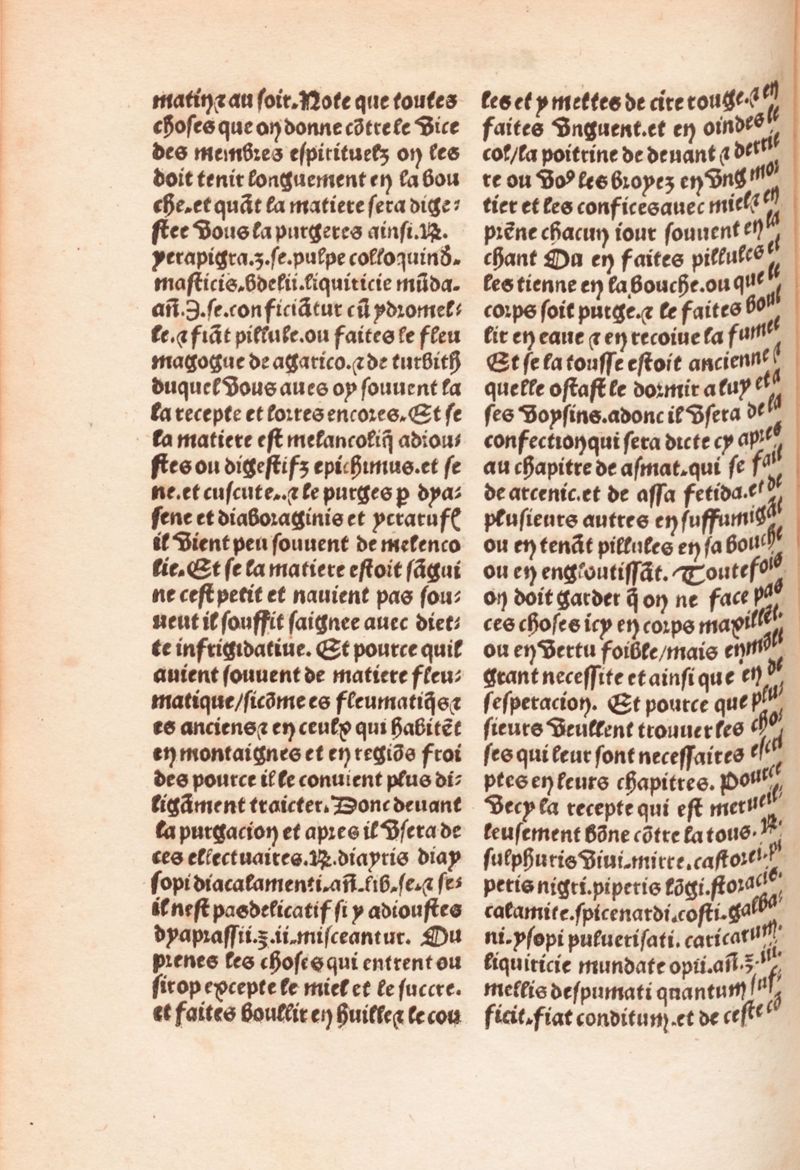 matin ⁊ au soir. Note que toutes
choses que on donne cõtre le vice
des membres espirituelz on les
doit tenir longuement en la bou
che. et quãt la matiere sera dige⸗
stee vous la purgeres ainsi. ℞.
yerapigra. ʒ. se. pulpe colloquind̃.
masticis. bdelii. liquiricie mũda.
añ. ℈. se. conficiãtur cũ ydromel⸗
le. ⁊ fiãt pillule. ou faites le fleu
magogue de agarico. ⁊ de turbith
duquel vous aues oy souuent la
la recepte et lorres encores. Et se
la matiere est melancoliq̃ adiou⸗
stes ou digestifz epithimus. et se
ne. et cuscute.. ⁊ le purges ꝑ dya⸗
sene et diaboraginis et yeraruf
il vient peu souuent de melenco
lie. Et se la matiere estoit sãgui
ne cest petit et nauient pas sou⸗
uent il souffit saignee auec diet⸗
te infrigidatiue. Et pource quil
auient souuent de matiere fleu⸗
matique/sicõme es fleumatiq̃s ⁊
es anciens ⁊ en ceulx qui habitẽt
en montaignes et en regiõs froi
des pource il le conuient plus di⸗
ligãment traicter. Donc deuant
la purgacion et apres il vsera de
ces ellectuaires. ℞. diayris diay
sopi diacalamenti. añ. lib. se. ⁊ se⸗
il nest pas delicatif si y adioustes
dyaprassii. ʒ. ii. misceantur. Ou
prenes les choses qui entrent ou
sirop excepte le miel et le succre.
et faites boullir en huille ⁊ le cou
les et y mettes de cire rouge. ⁊ en
faites vnguent. et en oindes le
col/la poitrine de deuant ⁊ derrie
re ou voꝰ les broyez en vng mor
tier et les confices auec miel ⁊ en
prẽne chacun iour souuent en la
chant Ou en faites pillules et
les tienne en la bouche. ou que le
corps soit purge. ⁊ le faites boul
lir en eaue ⁊ en recoiue la fumee
Et se la tousse estoit ancienne ⁊
quelle ostast le dormir a luy et a
ses voysins. adonc il vsera de la
confection qui sera dicte cy apres
au chapitre de asmat. qui se fait
de arcenic. et de assa fetida. et de
plusieurs autres en suffumigãt
ou en tenãt pillules en sa bouche
ou en engloutissãt. Toutefois
on doit garder q̃ on ne face pas
ces choses icy en corps maxillẽt.
ou en vertu foible/mais en mõlt
grant necessite et ainsi que en de
sesperacion. Et pource que plu⸗
sieurs veullent trouuer les cho⸗
ses qui leur sont necessaires escri
ptes en leurs chapitres. Pource
vecy la recepte qui est merueil⸗
leusement bõne cõtre la tous. ℞.
sulphuris viui. mirre. castorei. pi
peris nigri. piperis lõgi. storacie
calamite. spicenardi. costi. galba⸗
ni. ysopi puluerisati. caricarum.
liquiricie mundate opii. añ. ʒ. iii.
mellis despumati quantum suf⸗
ficit. fiat conditum. et de ceste cõ